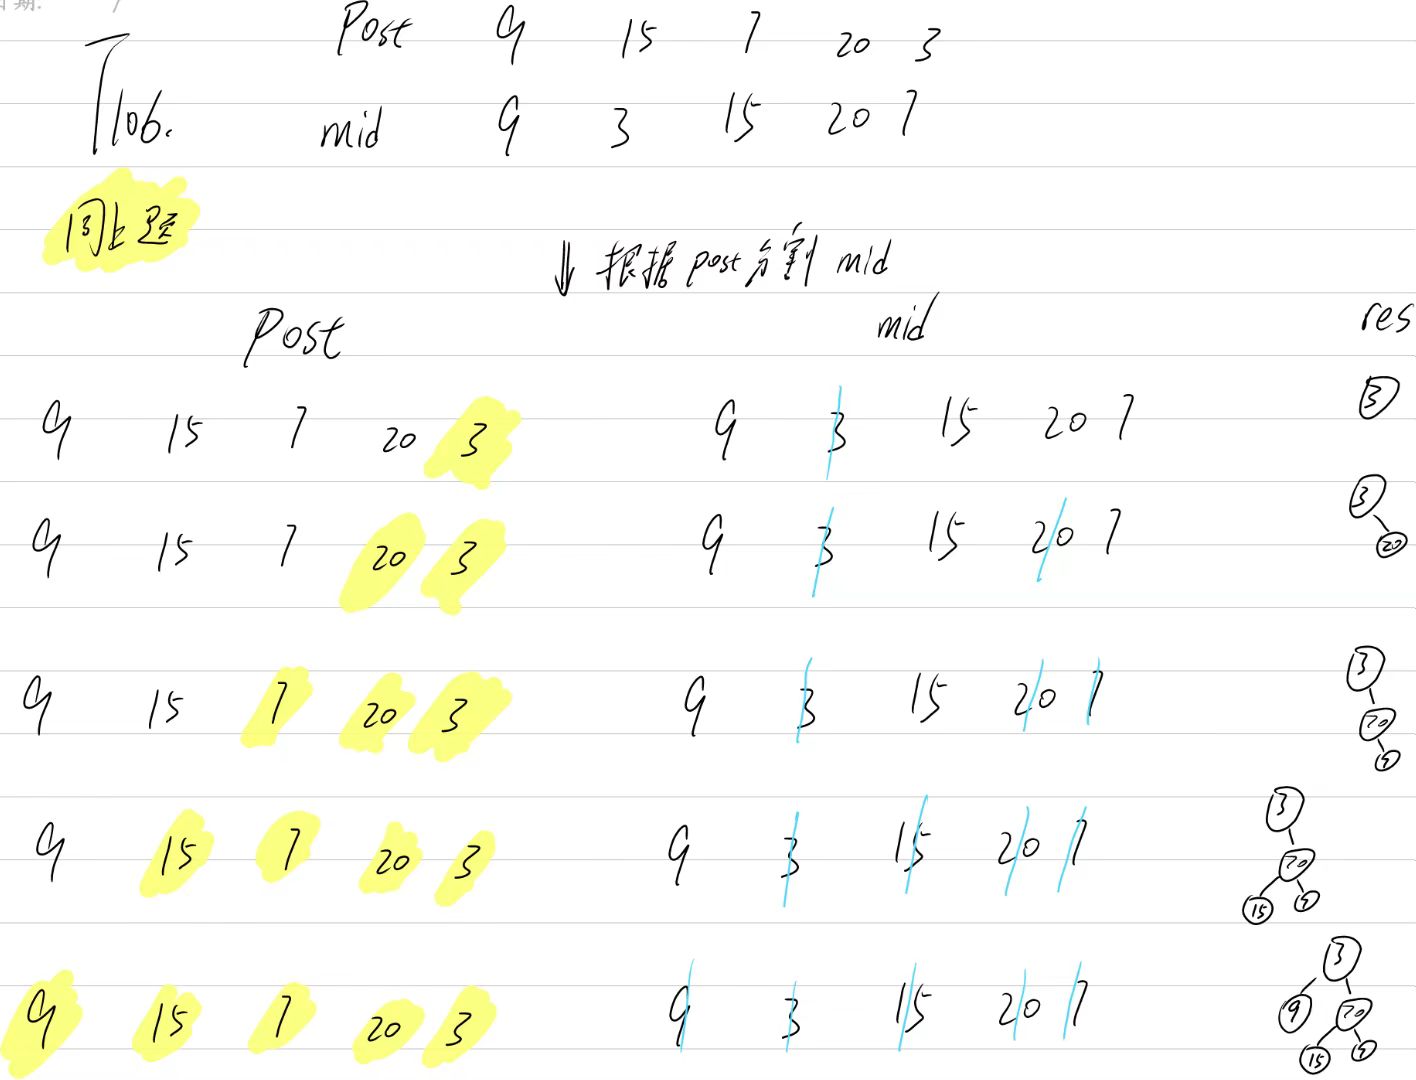 日期: /
Post 9 15 7 20 3
T106. mid 9 3 15 20 7
同上题
↓ 根据 post 分割 mid
Post mid res
9 15 7 20 3 9 3 15 20 7 3
9 15 7 20 3 9 3 15 20 7 3 20
9 15 7 20 3 9 3 15 20 7 3 20 7
9 15 7 20 3 9 3 15 20 7 3 20 15 7
9 15 7 20 3 9 3 15 20 7 3 9 20 15 7